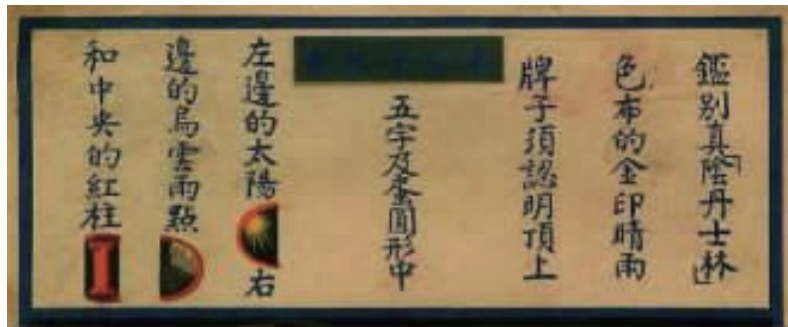 鑑別真「陰丹士林」
色布的金印晴雨
牌子須認明頂上
五字及蛋圓形中
左邊的太陽 右
邊的烏雲雨點
和中央的紅柱